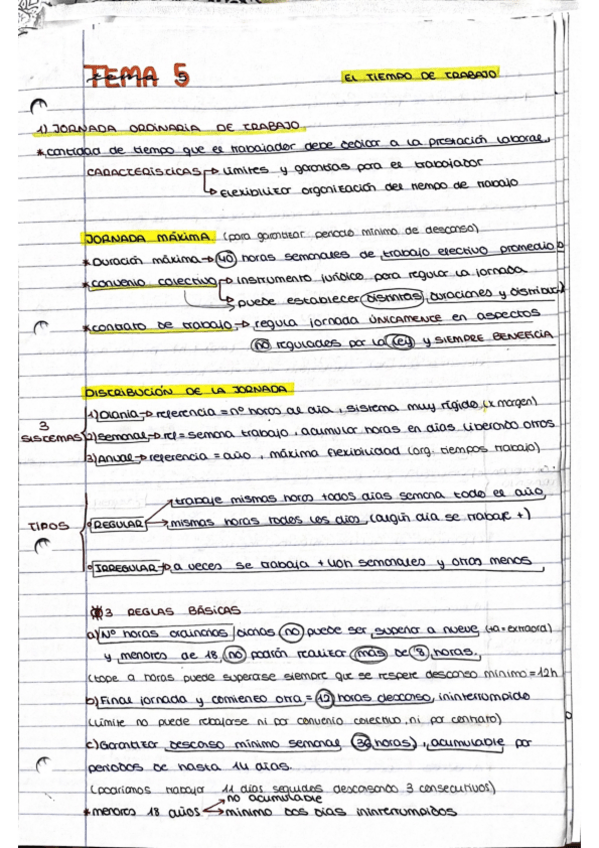 TEMA 5
EL TIEMPO DE TRABAJO
1) JORNADA ORDINARIA DE TRABAJO
* cantidad de tiempo que el trabajador debe dedicar a la prestación laboral
CARACTERÍSTICAS → Límites y garantías para el trabajador
→ Flexibilizar organización del tiempo de trabajo
JORNADA MÁXIMA (para garantizar periodo mínimo de descanso)
* Duración máxima → 40 horas semanales de trabajo efectivo promedio
* convenio colectivo → instrumento jurídico para regular la jornada
→ puede establecer distintas duraciones y distribuc.
* contrato de trabajo → regula jornada ÚNICAMENTE en aspectos
no regulados por la ley y SIEMPRE BENEFICIA
DISTRIBUCIÓN DE LA JORNADA
3 SISTEMAS
1) Diaria → referencia = nº horas al día, sistema muy rígido (x margen)
2) Semanal → ref = semana trabajo, acumular horas en días liberando otros
3) Anual → referencia = año, máxima flexibilidad (org. tiempos trabajo)
TIPOS
→ trabaje mismas horas todos días semana todo el año
REGULAR → mismas horas todos los días, (algún día se trabaje +)
IRREGULAR → a veces se trabaja + 40h semanales y otros menos
3 REGLAS BÁSICAS
a) Nº horas ordinarias diarias no puede ser superior a nueve
y menores de 18 no podrán realizar más de 8 horas.
(tope 9 horas puede superarse siempre que se respete descanso mínimo = 12h
b) Final jornada y comienzo otra = 12 horas descanso, ininterrumpido
(Límite no puede rebajarse ni por convenio colectivo, ni por contrato)
c) Garantizar descanso mínimo semanal (36 horas), acumulable por
periodos de hasta 14 días.
(podríamos trabajar 11 días seguidos descansando 3 consecutivos)
→ no acumulable
* menores 18 años → mínimo dos días ininterrumpidos